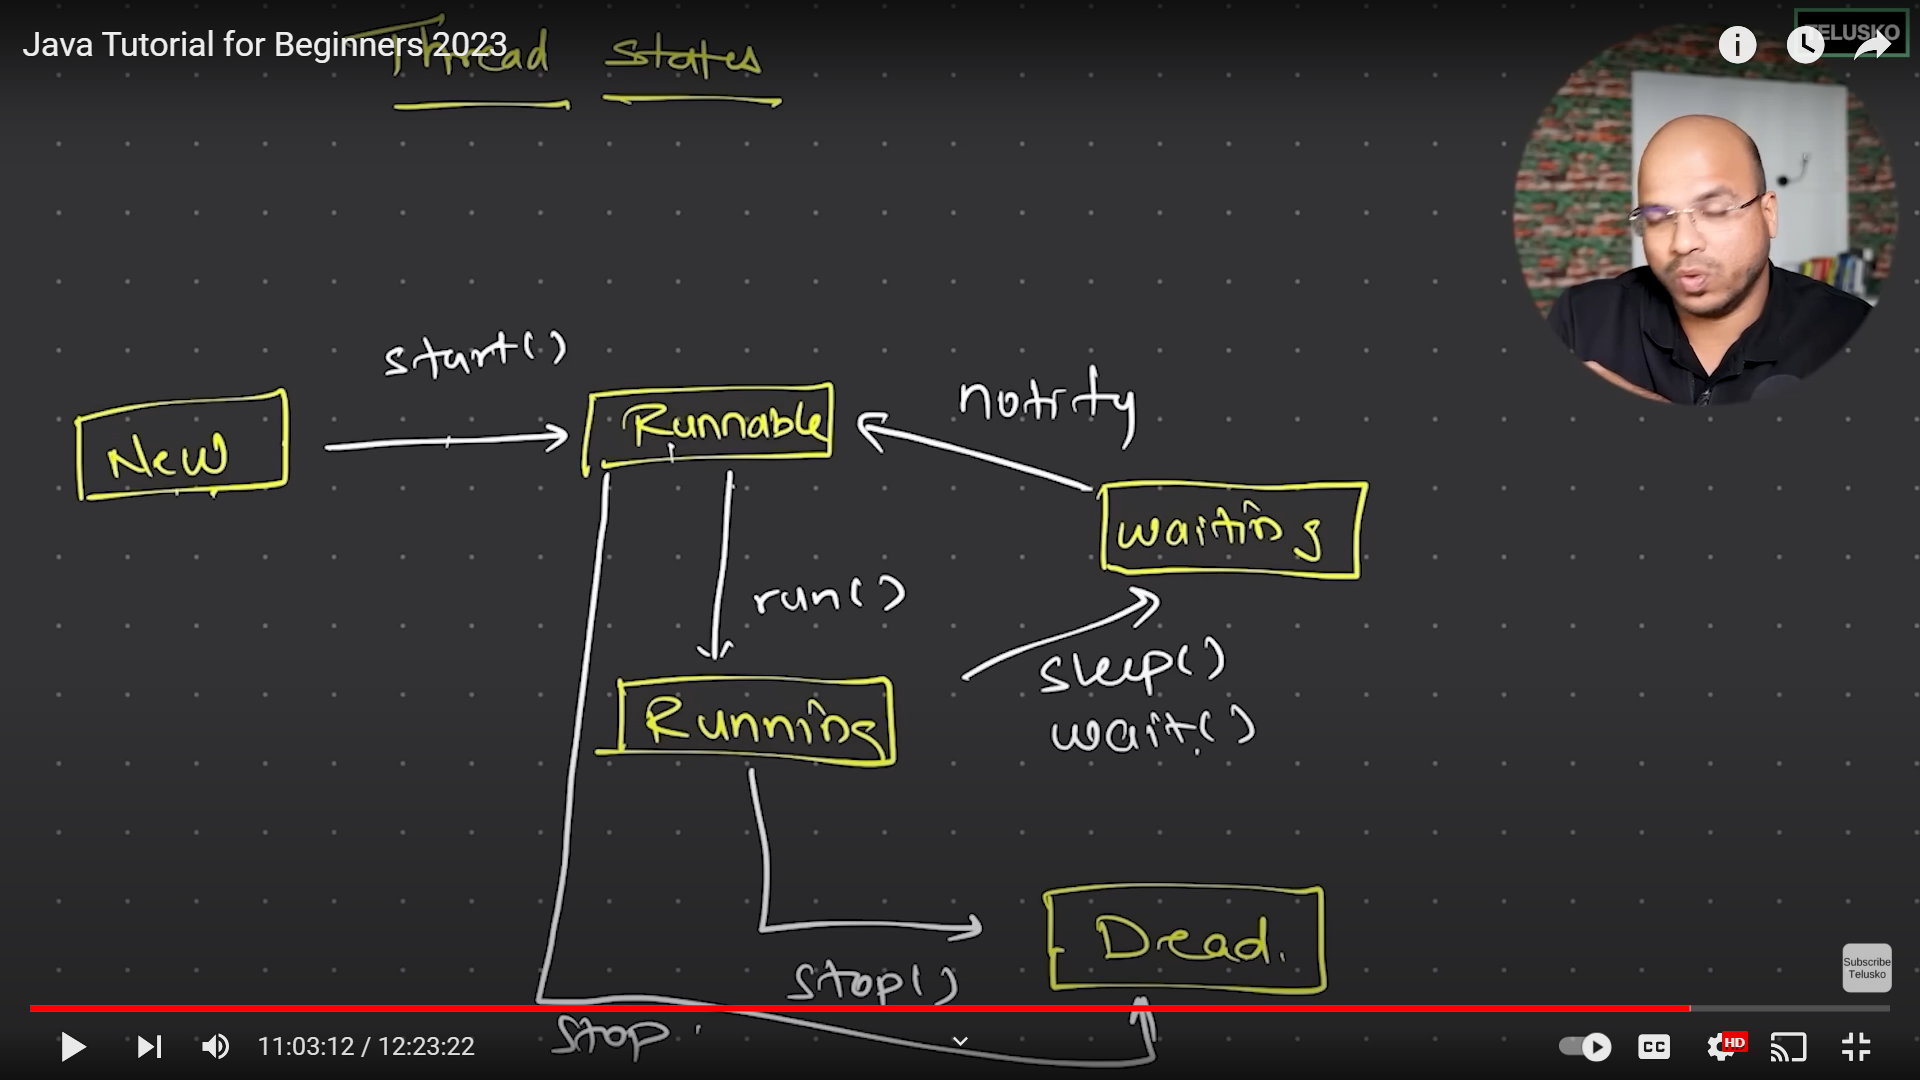 Java Tutorial for Beginners 2023
TELUSKO
Thread States
start()
New
Runnable
notify
waiting
run()
sleep()
wait()
Running
Dead.
stop()
stop
Subscribe
Telusko
11:03:12 / 12:23:22
CC
HD